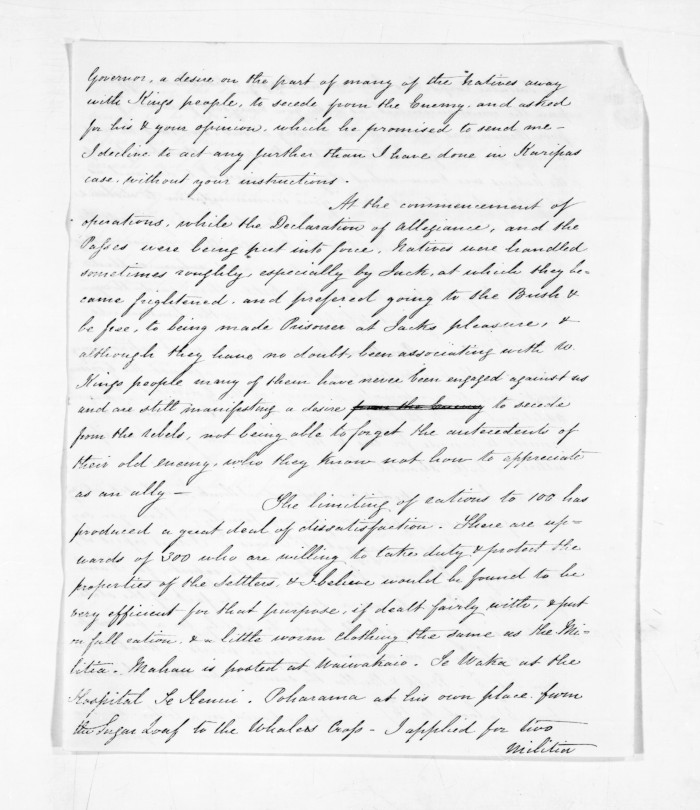 Governor, a desire on the part of many of the Natives away
with Kings people, to secede from the Enemy. and asked
for his & your opinion, which he promised to send me –
I decline to act any further than I have done in Karipas
case. without your instructions.
At the commencement of
operations, while the Declaration of Allegiance, and the
Passes were being put into force, Natives were handled
sometimes roughly, especially by Jack, at which they be-
came frightened. and prefered going to the Bush &
be free, to being made Prisoner at Jacks pleasure, &
although they have no doubt, been associating with W.
Kings people many of them have never been engaged against us
and are still manifesting a desire from the Enemy to secede
from the rebels, not being able to forget the antecedents of
their old enemy, who they know not how to appreciate
as an ally –
The limiting of rations to 100 has
produced a great deal of dissatisfaction. There are up-
wards of 300 who are willing to take duty & protect the
properties of the Settlers, & I believe would be found to be
very efficient for that purpose, if dealt fairly with, & put
on full ration, & a little worm clothing the same as the Mi-
litia. Mahau is posted at Waiwakaio. Te Waka at the
Hospital Te Henui. Poharama at his own place from
the Sugar Loaf to the Whalers Crop – I applied for two
militia